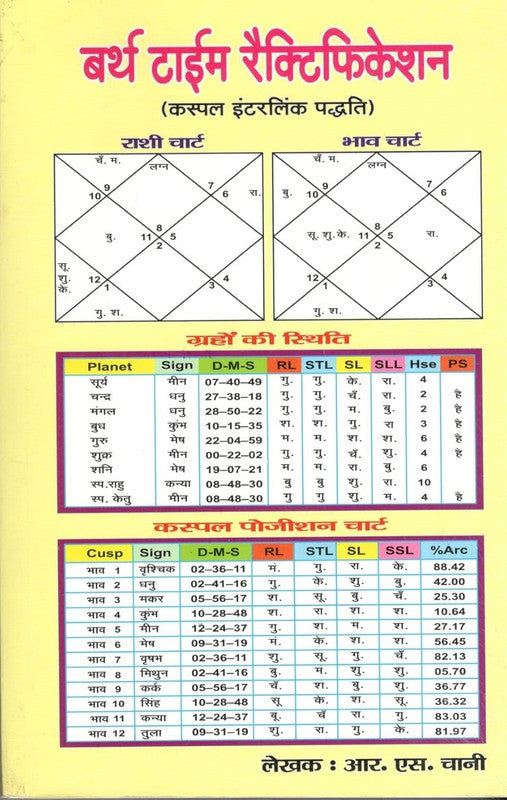 बर्थ टाईम रैक्टिफिकेशन
(कस्पल इंटरलिंक पद्धति)
राशी चार्ट
चँ. म.
लग्न
9
10
7
6
रा.
बु.
8
11
5
2
सू.
शु.
के.
12
1
3
4
गु. श.
भाव चार्ट
चँ. म.
लग्न
बु.
9
10
7
6
सू. शु. के.
8
11
5
2
रा.
12
1
3
4
गु. श.
ग्रहों की स्थिति
Planet Sign D-M-S RL STL SL SLL Hse PS
सूर्य मीन 07-40-49 गु. गु. के. रा. 4
चन्द्र धनु 27-38-18 गु. गु. चँ. रा. 2 है
मंगल धनु 28-50-22 गु. गु. म. बु. 2 है
बुध कुंभ 10-15-35 श. श. गु. रा 3 है
गुरु मेष 22-04-59 म. म. श. श. 6 है
शुक्र मीन 00-22-02 गु. गु. चँ. शु. 4 है
शनि मेष 19-07-21 म. म. रा. बु. 6
स्प.राहु कन्या 08-48-30 बु बु शु. रा. 10
स्प. केतु मीन 08-48-30 गु गु शु. म. 4 है
कस्पल पोजीशन चार्ट
Cusp Sign D-M-S RL STL SL SSL %Arc
भाव 1 वृश्चिक 02-36-11 मं. गु. रा. के. 88.42
भाव 2 धनु 02-41-16 गु. के. शु. बु. 42.00
भाव 3 मकर 05-56-17 श. सू. बु. चँ. 25.30
भाव 4 कुंभ 10-28-48 श. रा. श. श. 10.64
भाव 5 मीन 12-24-37 गु. श. म. श. 27.17
भाव 6 मेष 09-31-19 मं. के. श. श. 56.45
भाव 7 वृषभ 02-36-11 शु. सू. गु. चँ. 82.13
भाव 8 मिथुन 02-41-16 बु. म. शु. शु. 05.70
भाव 9 कर्क 05-56-17 चँ. श. बु. शु. 36.77
भाव 10 सिंह 10-28-48 सू के. श. सू. 36.32
भाव 11 कन्या 12-24-37 बू. चँ रा. गु. 83.03
भाव 12 तुला 09-31-19 शु. रा. गु. के. 81.97
लेखक : आर. एस. चानी